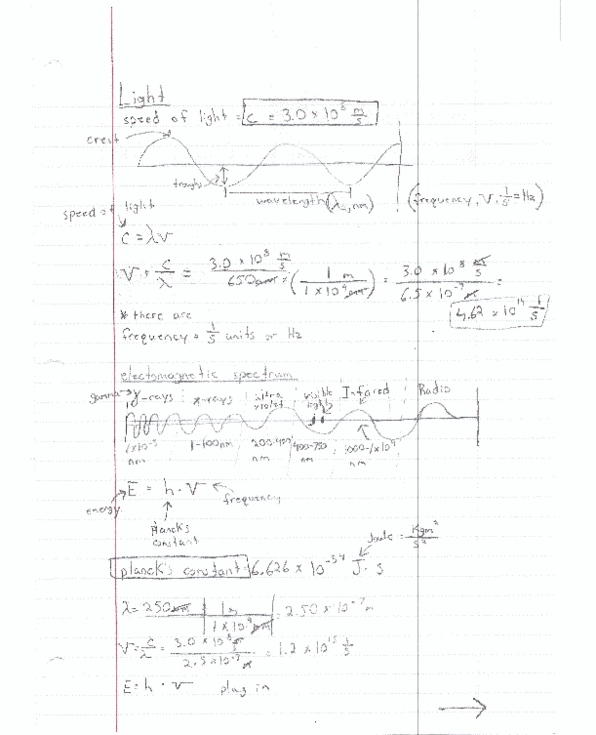 Light
speed of light = c = 3.0 × 10^8 m/s
crest
trough
wavelength (λ, nm)
(frequency, V, 1/s = Hz)
speed of light
c = λV
V = c/λ = 3.0 × 10^8 m/s / 650 nm × (1 m / 1 × 10^9 nm) = 3.0 × 10^8 m/s / 6.5 × 10^-7 m =
4.62 × 10^14 1/s
* there are
frequency = 1/s units or Hz
electomagnetic spectrum
x-rays
ultra violet
visible light
Infared
Radio
1-100nm
200-400 nm
400-750 nm
1000-1×10^9 nm
E = h · V
energy
Planck's constant
frequency
Joule = Kgm²/s²
planck's constant 6.626 × 10^-34 J · s
λ = 250 nm | 1 m / 1 × 10^9 nm = 2.50 × 10^-7 m
V = c/λ = 3.0 × 10^8 m/s / 2.5 × 10^-7 m = 1.2 × 10^15 1/s
E = h · V plug in